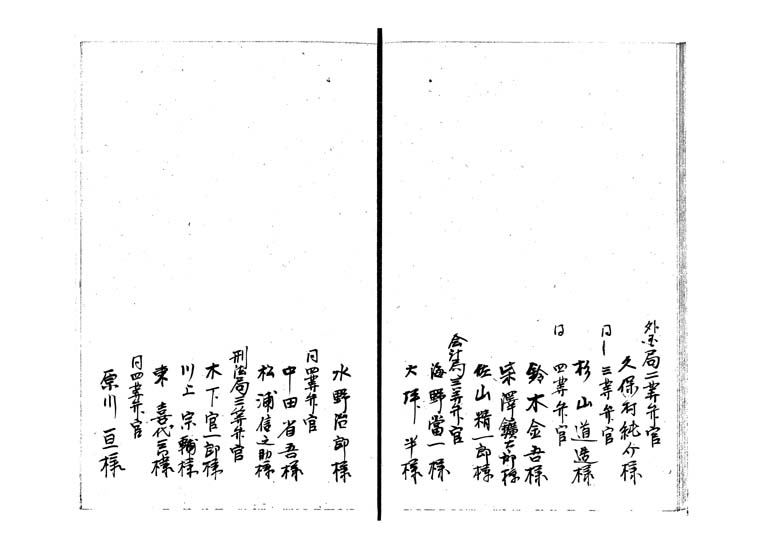 外国局二等弁官
久保村純介様
同 三等弁官
杉山道造様
同 四等弁官
鈴木金吾様
柴澤鐵太郎様
佐山精一郎様
会計局三等弁官
海野當一様
大坪半様
水野治郎様
同四等弁官
中田省吾様
松浦信之助様
刑法局三等弁官
木下官一郎様
川上宗輔様
東喜代三様
同四等弁官
原川亘様